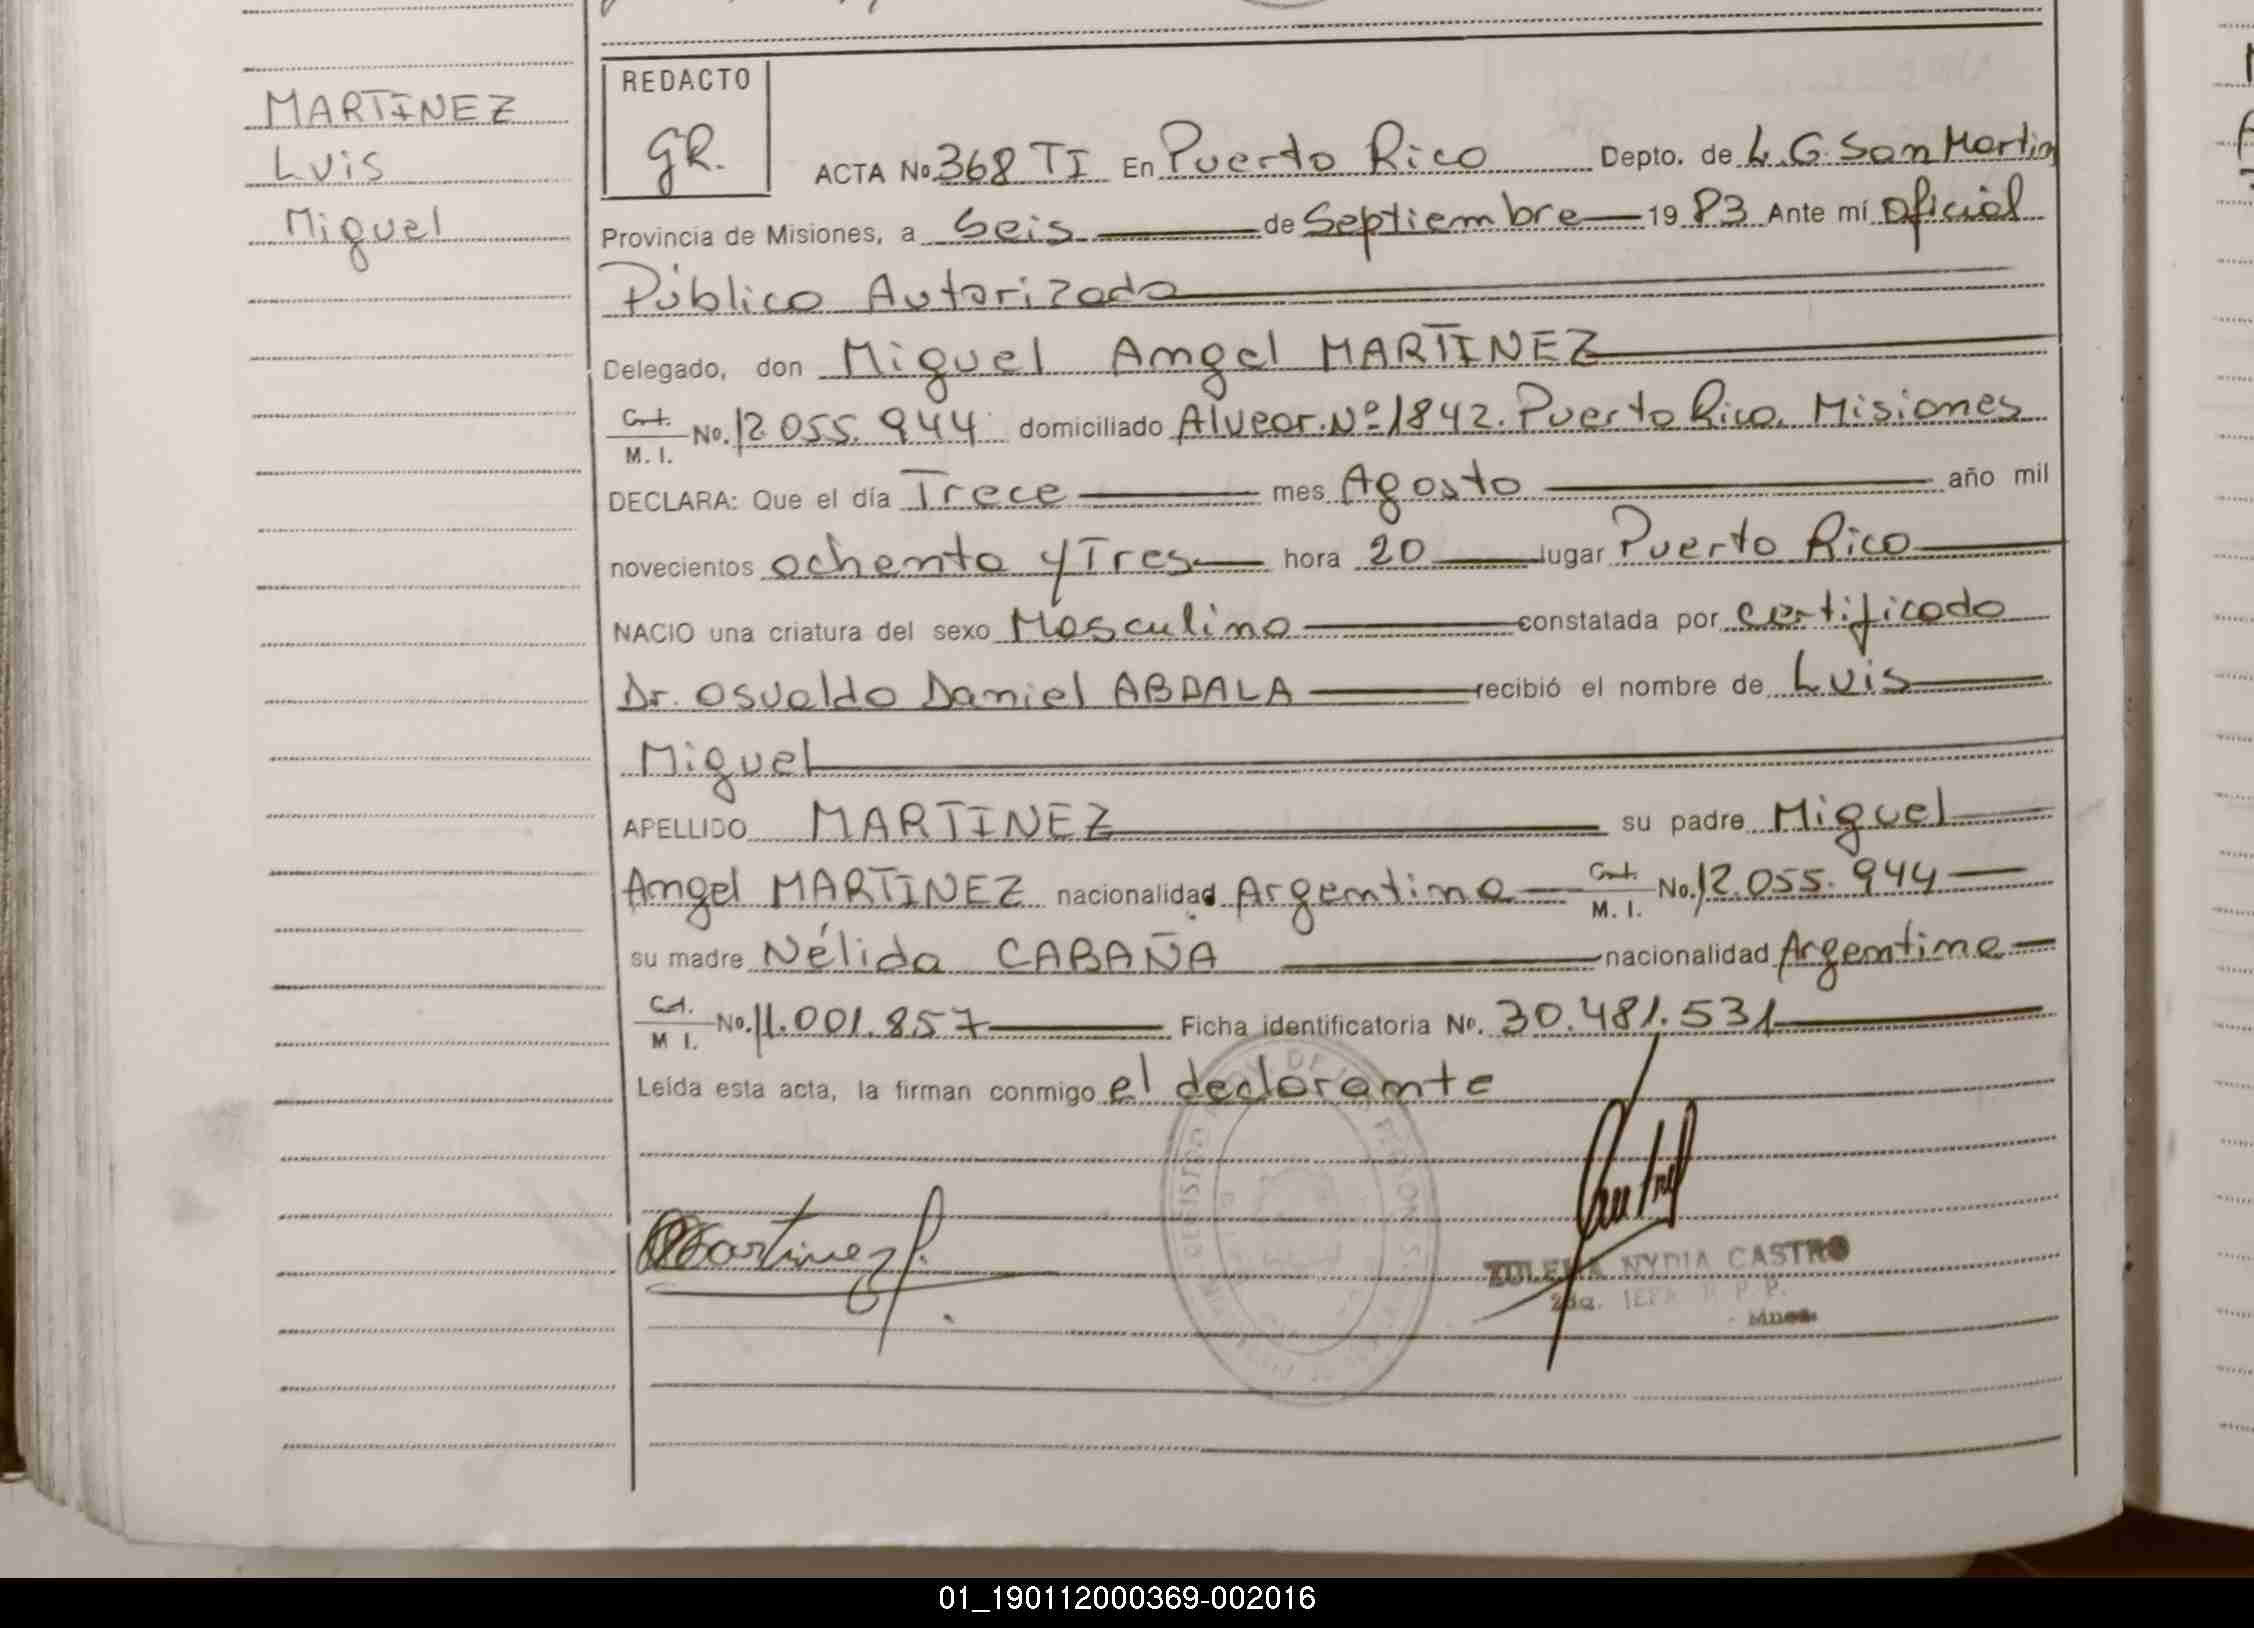 MARTINEZ
Luis
Miguel
REDACTO
GR.
ACTA No 368 TI En Puerto Rico Depto. de L.G. San Martin
Provincia de Misiones, a Seis de Septiembre 19 83 Ante mí Oficial
Público Autorizado
Delegado, don Miguel Angel MARTINEZ
Cert.
M. I. No. 12.055.944 domiciliado Alvear Nº 1842. Puerto Rico. Misiones
DECLARA: Que el día Trece mes Agosto año mil
novecientos ochenta y Tres hora 20 lugar Puerto Rico
NACIO una criatura del sexo Masculino constatada por certificado
Dr. Osvaldo Daniel ABDALA recibió el nombre de Luis
Miguel
APELLIDO MARTINEZ su padre Miguel
Angel MARTINEZ nacionalidad Argentina M. I. No. 12.055.944
su madre Nélida CABAÑA nacionalidad Argentina
M I. No. 11.001.857 Ficha identificatoria No. 30.481.531
Leída esta acta, la firman conmigo el declarante
Martinez
NYDIA CASTRO
2da.
Mnes.
01_190112000369-002016